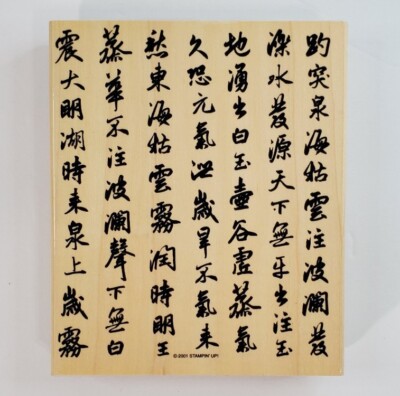 趵突泉海枯雲注波瀾發
濼水發源天下無平出注玉
地湧出白玉壺谷虛蒸氣
久恐元氣洩歲旱不氣來
愁東海枯雲霧潤時明王
蒸華不注波瀾聲下無白
震大明湖時來泉上歲霧
© 2001 STAMPIN' UP!